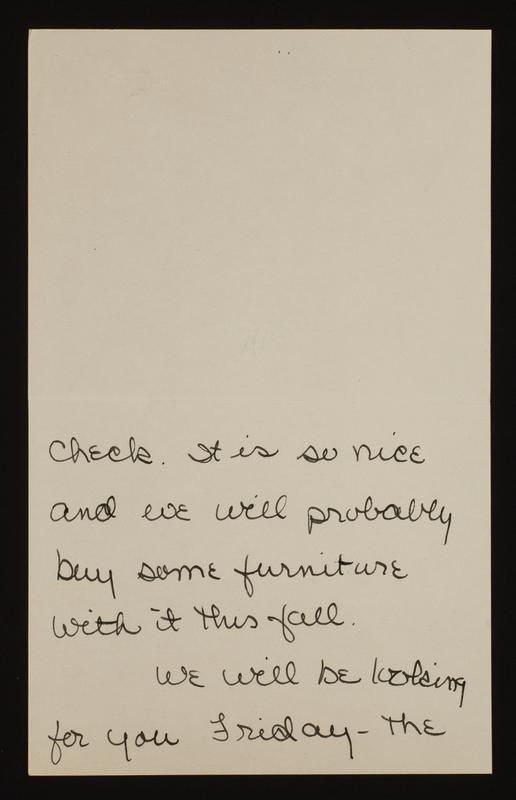 Check. It is so nice
and we will probably
buy some furniture
with it this fall.
We will be looking
for you Friday - The